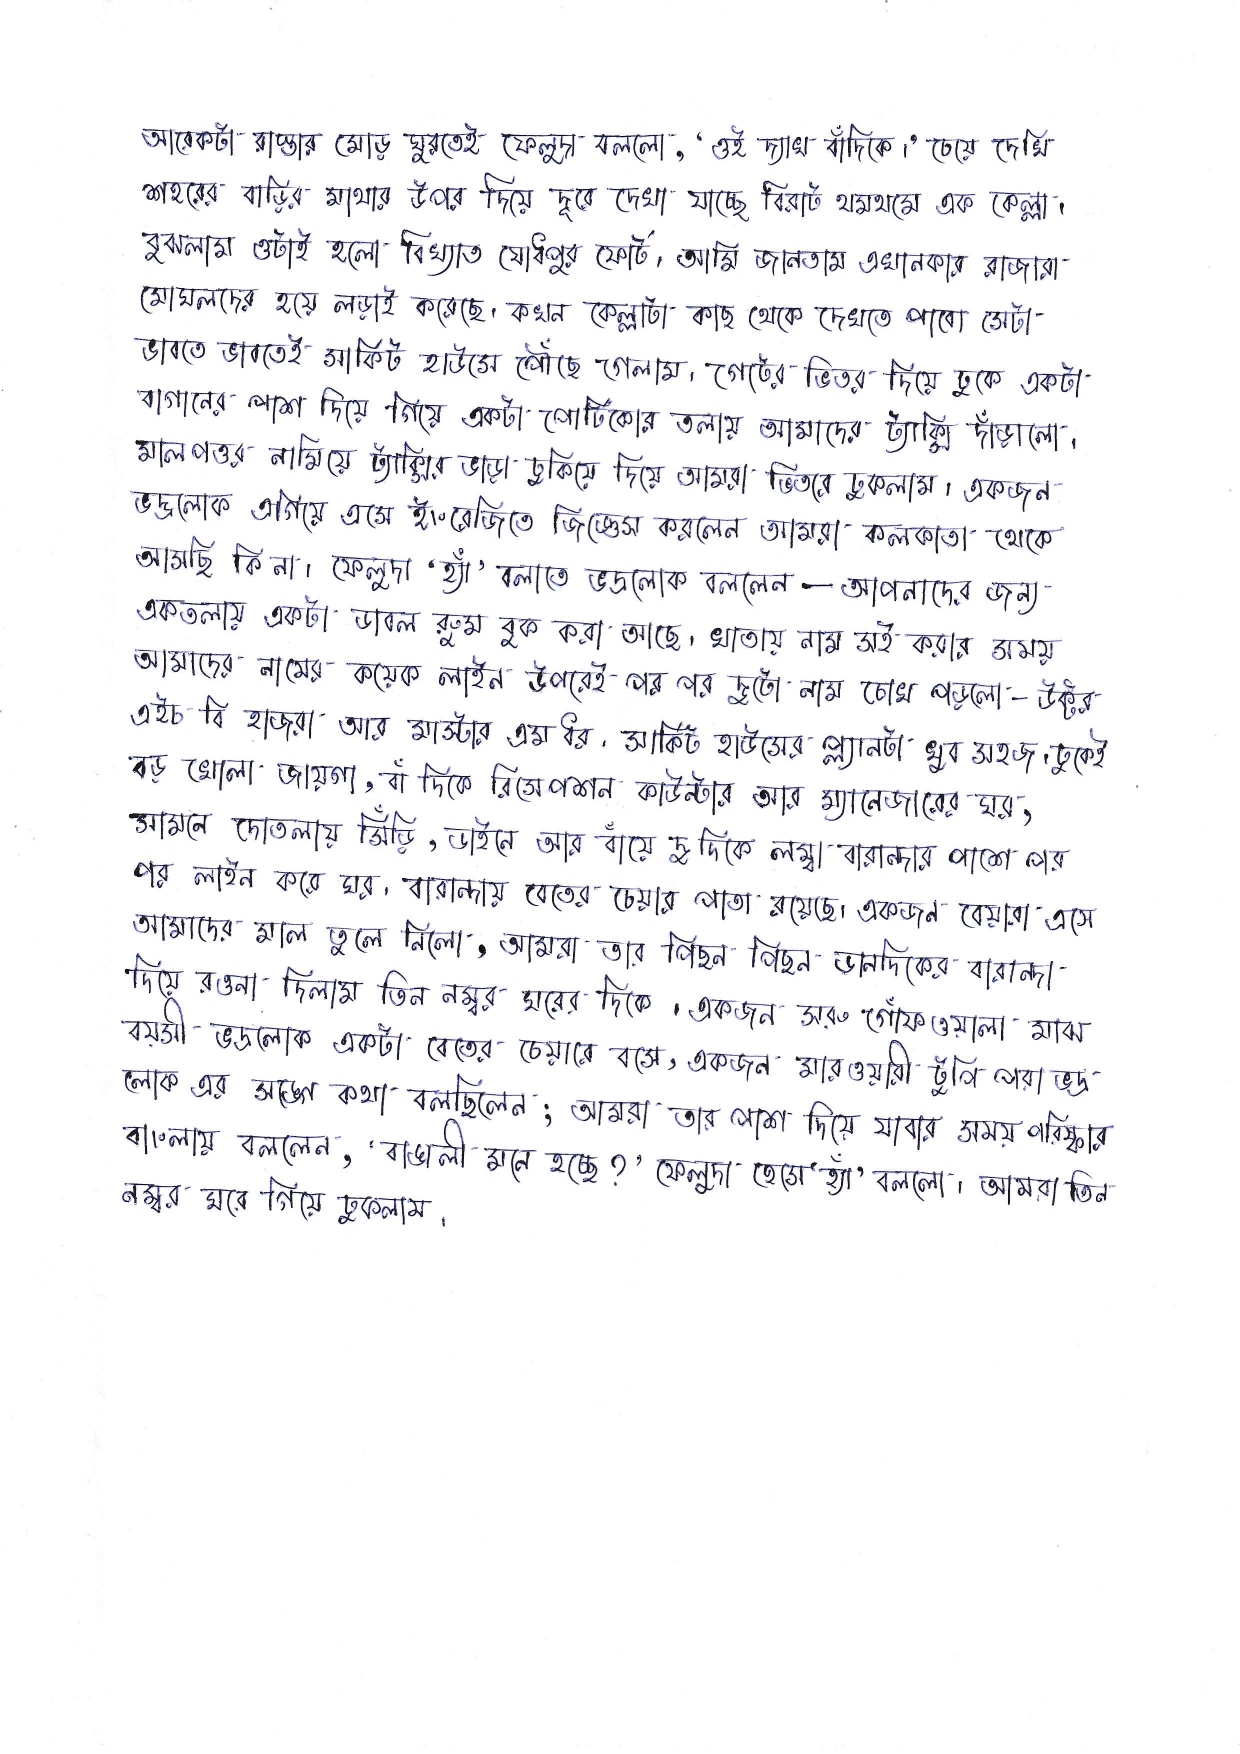 আরেকটা রাস্তার মোড় ঘুরতেই ফেলুদা বললো, ‘ওই দ্যাখ বাঁদিকে।’ চেয়ে দেখি
শহরের বাড়ির মাথার উপর দিয়ে দূরে দেখা যাচ্ছে বিরাট থমথমে এক কেল্লা।
বুঝলাম ওটাই হলো বিখ্যাত যোধপুর ফোর্ট। আমি জানতাম এখানকার রাজারা
মোঘলদের হয়ে লড়াই করেছে। কখন কেল্লাটা কাছ থেকে দেখতে পাবো সেটা
ভাবতে ভাবতেই সার্কিট হাউসে পৌঁছে গেলাম। গেটের ভিতর দিয়ে ঢুকে একটা
বাগানের পাশ দিয়ে গিয়ে একটা পোর্টিকোর তলায় আমাদের ট্যাক্সি দাঁড়ালো।
মালপত্তর নামিয়ে ট্যাক্সির ভাড়া চুকিয়ে দিয়ে আমরা ভিতরে ঢুকলাম। একজন
ভদ্রলোক এগিয়ে এসে ইংরেজিতে জিজ্ঞেস করলেন আমরা কলকাতা থেকে
আসছি কি না। ফেলুদা ‘হ্যাঁ’ বলাতে ভদ্রলোক বললেন – আপনাদের জন্য
একতলায় একটা ডাবল রুম বুক করা আছে। খাতায় নাম সই করার সময়
আমাদের নামের কয়েক লাইন উপরেই পর পর দুটো নাম চোখ পড়লো – ডক্টর
এইচ বি হাজরা আর মাস্টার এম ধর। সার্কিট হাউসের প্ল্যানটা খুব সহজ। ঢুকেই
বড় খোলা জায়গা, বাঁ দিকে রিসেপশন কাউন্টার আর ম্যানেজারের ঘর,
সামনে দোতলায় সিঁড়ি, ডাইনে আর বাঁয়ে দু দিকে লম্বা বারান্দার পাশে পর
পর লাইন করে ঘর। বারান্দায় বেতের চেয়ার পাতা রয়েছে। একজন বেয়ারা এসে
আমাদের মাল তুলে নিলো, আমরা তার পিছন পিছন ডানদিকের বারান্দা
দিয়ে রওনা দিলাম তিন নম্বর ঘরের দিকে। একজন সরু গোঁফওয়ালা মাঝ
বয়সী ভদ্রলোক একটা বেতের চেয়ারে বসে, একজন মারওয়ারী টুপি পরা ভদ্র
লোক এর সঙ্গে কথা বলছিলেন; আমরা তার পাশ দিয়ে যাবার সময় পরিষ্কার
বাংলায় বললেন, ‘বাঙালী মনে হচ্ছে?’ ফেলুদা হেসে ‘হ্যাঁ’ বললো। আমরা তিন
নম্বর ঘরে গিয়ে ঢুকলাম।